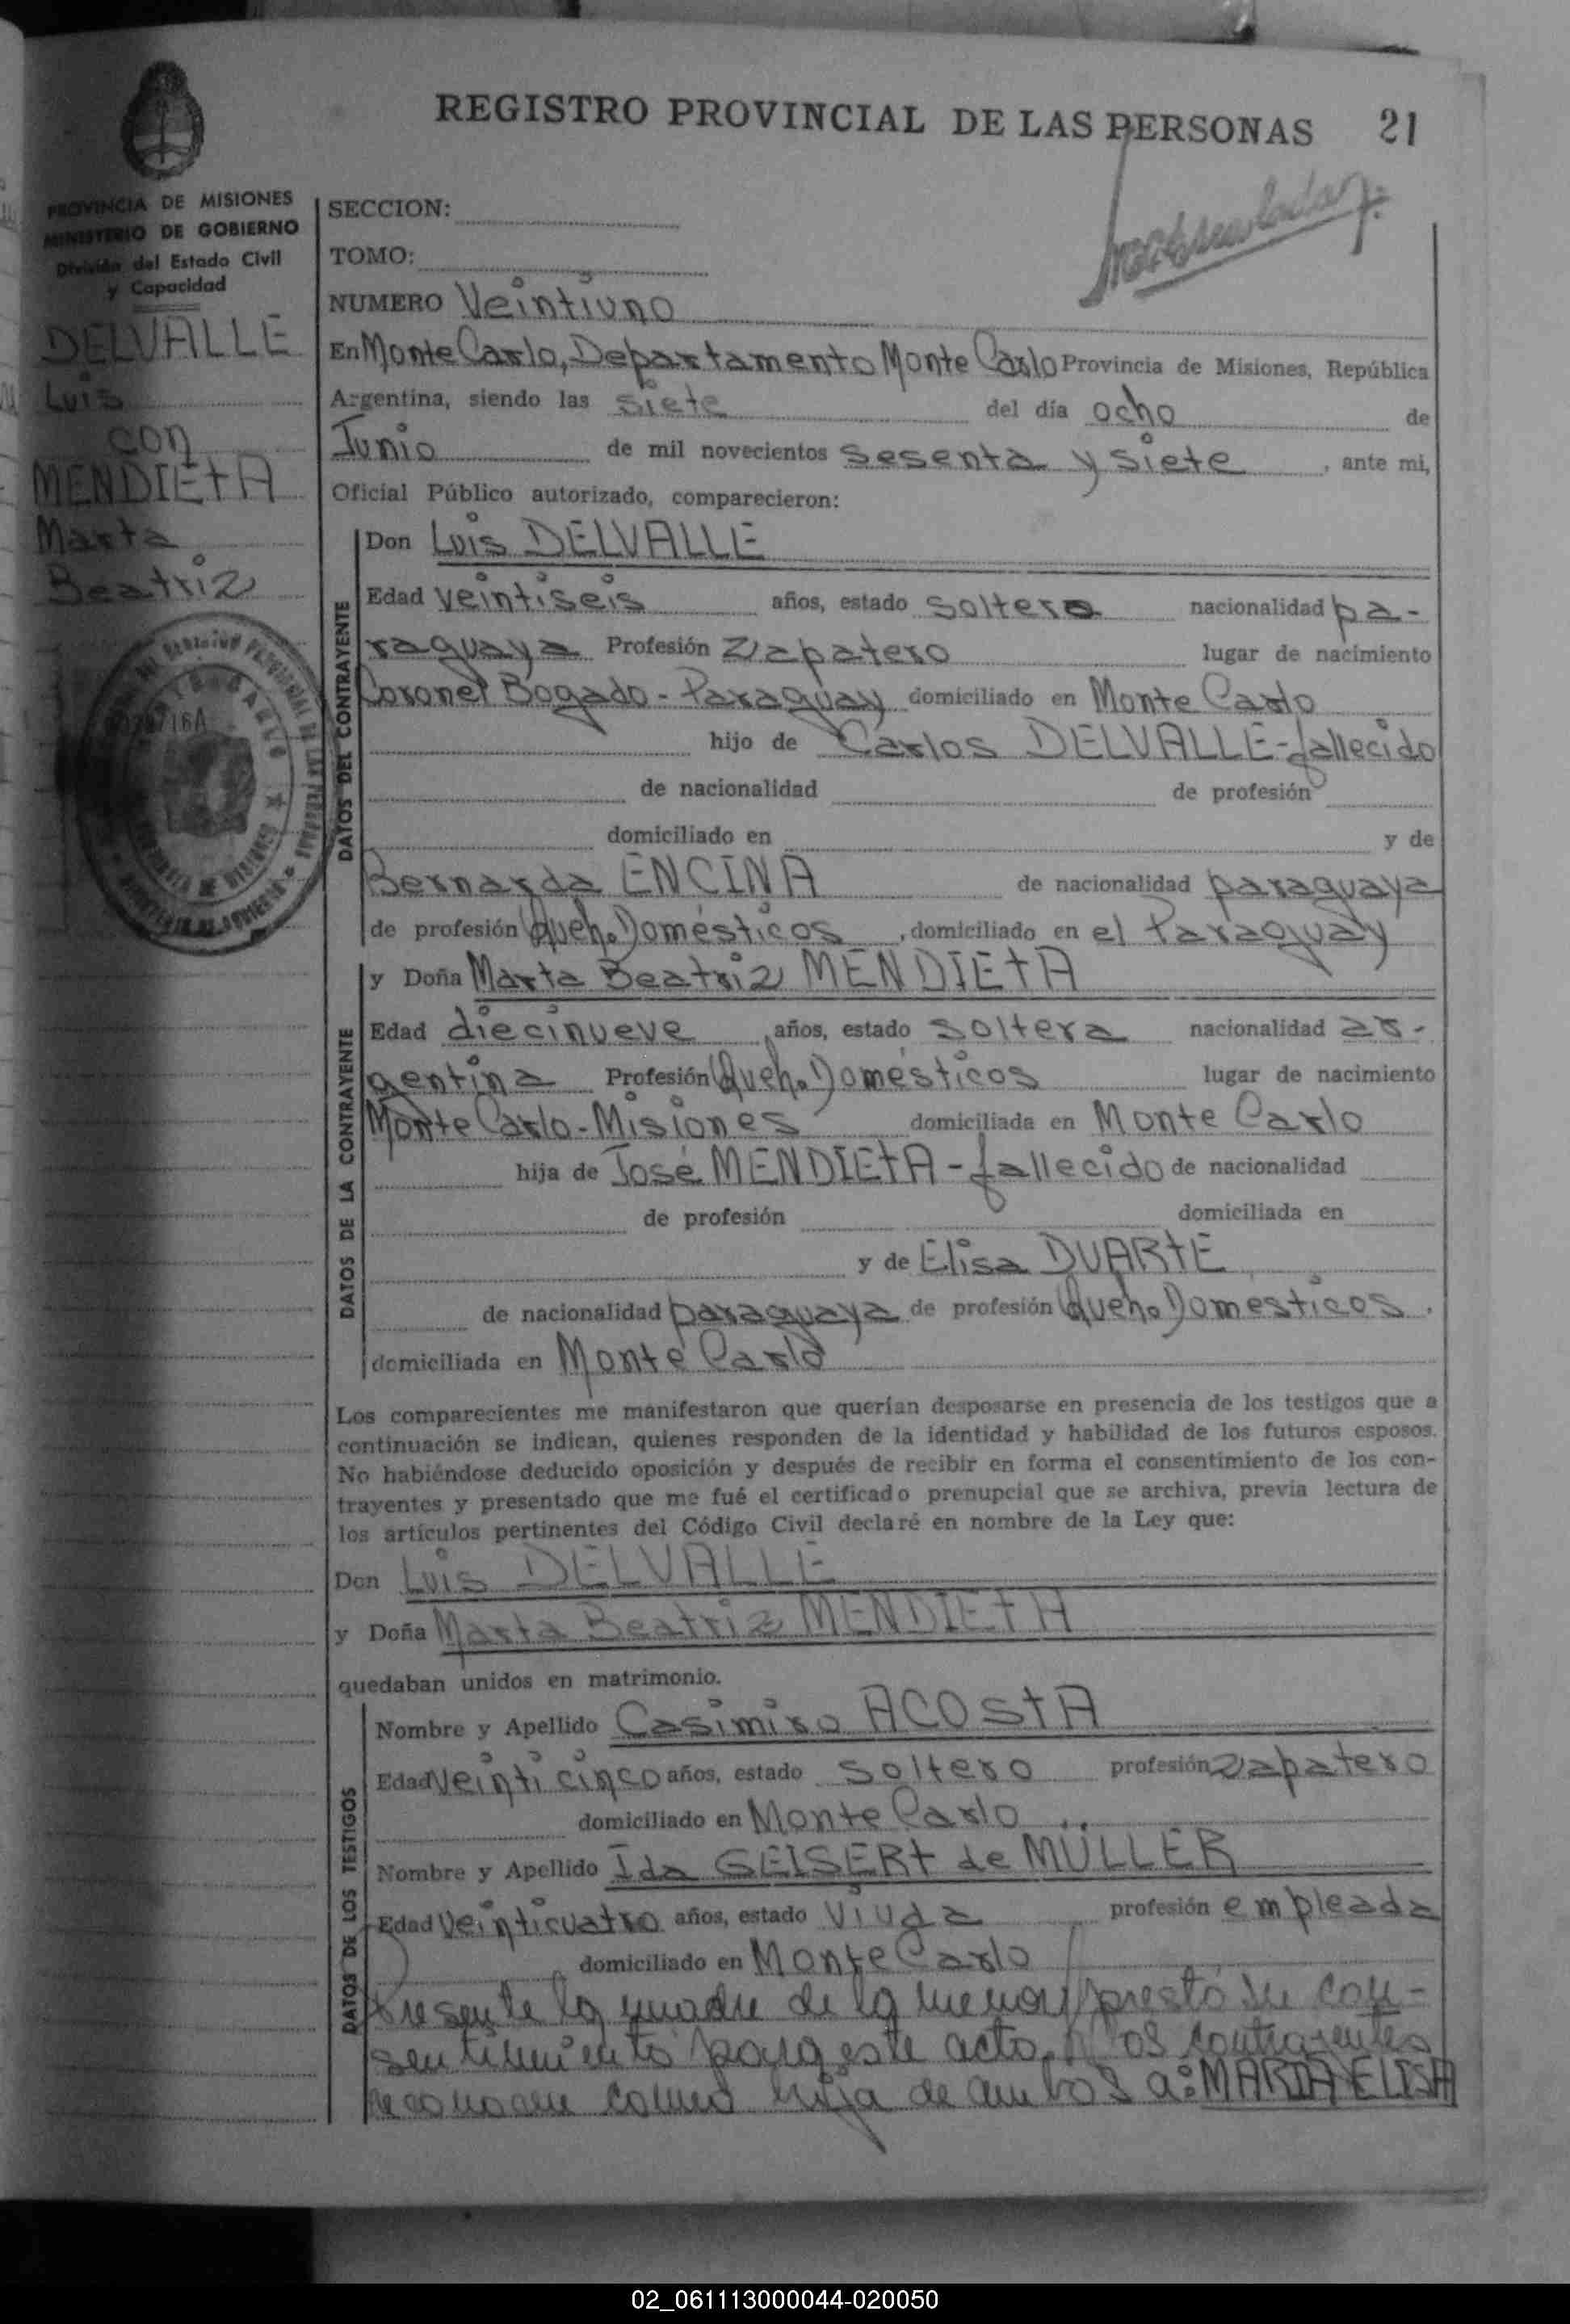 REGISTRO PROVINCIAL DE LAS PERSONAS 21
PROVINCIA DE MISIONES
MINISTERIO DE GOBIERNO
División del Estado Civil
y Capacidad
DELVALLE
Luis
con
MENDIETA
Marta
Beatriz
SECCION:
TOMO:
NUMERO Veintiuno
En Monte Carlo, Departamento Monte Carlo Provincia de Misiones, República
Argentina, siendo las siete del día ocho de
Junio de mil novecientos sesenta y siete, ante mi,
Oficial Público autorizado, comparecieron:
DATOS DEL CONTRAYENTE
Don Luis DELVALLE
Edad veintiseis años, estado soltero nacionalidad pa-
raguaya Profesión Zapatero lugar de nacimiento
Coronel Bogado - Paraguay domiciliado en Monte Carlo
hijo de Carlos DELVALLE-fallecido
de nacionalidad de profesión
domiciliado en y de
Bernarda ENCINA de nacionalidad paraguaya
de profesión Queh. Domésticos, domiciliado en el Paraguay
DATOS DE LA CONTRAYENTE
y Doña Marta Beatriz MENDIETA
Edad diecinueve, años, estado soltera nacionalidad ar-
gentina Profesión Queh. Domésticos lugar de nacimiento
Monte Carlo-Misiones domiciliada en Monte Carlo
hija de José MENDIETA-fallecido de nacionalidad
de profesión domiciliada en
y de Elisa DUARTE
de nacionalidad paraguaya de profesión Queh. Domesticos.
domiciliada en Monte Carlo
Los comparecientes me manifestaron que querían desposarse en presencia de los testigos que a
continuación se indican, quienes responden de la identidad y habilidad de los futuros esposos.
No habiéndose deducido oposición y después de recibir en forma el consentimiento de los con-
trayentes y presentado que me fué el certificado prenupcial que se archiva, previa lectura de
los artículos pertinentes del Código Civil declaré en nombre de la Ley que:
Don Luis DELVALLE
y Doña Marta Beatriz MENDIETA
quedaban unidos en matrimonio.
DATOS DE LOS TESTIGOS
Nombre y Apellido Casimiro ACOSTA
Edad Veinticinco años, estado soltero profesión zapatero
domiciliado en Monte Carlo
Nombre y Apellido Ida GEISERT de MÜLLER
Edad Veinticuatro años, estado viuda profesión empleada
domiciliado en Monte Carlo
Presente la madre de la menor prestó su con-
sentimiento para este acto. Los contrayentes
reconocen como hija de ambos a: MARIA ELISA
02_061113000044-020050